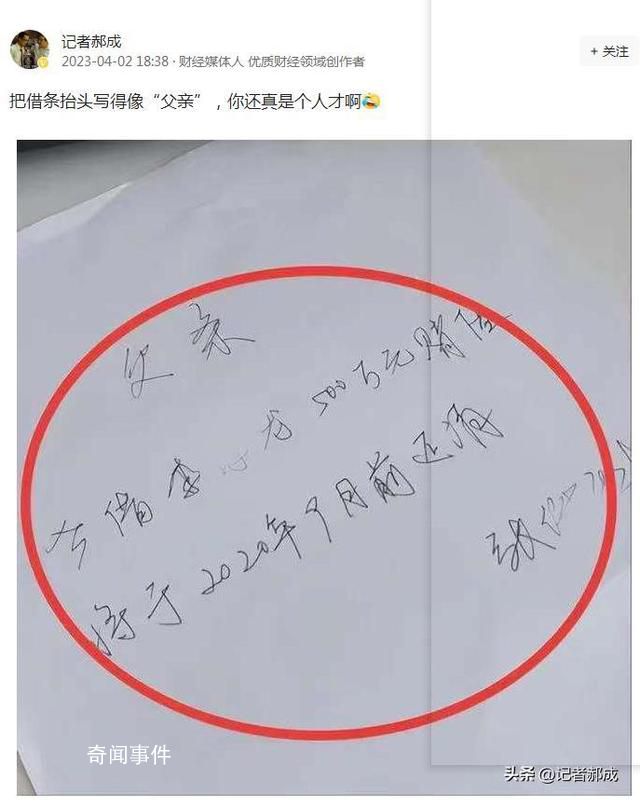 记者郝成
2023-04-02 18:38 · 财经媒体人 优质财经领域创作者
+ 关注
把借条抬头写得像“父亲”，你还真是个人才啊🤣
父亲
借李 龙 500万元赌
将于2020年9月前还清
奇闻事件
头条 @记者郝成